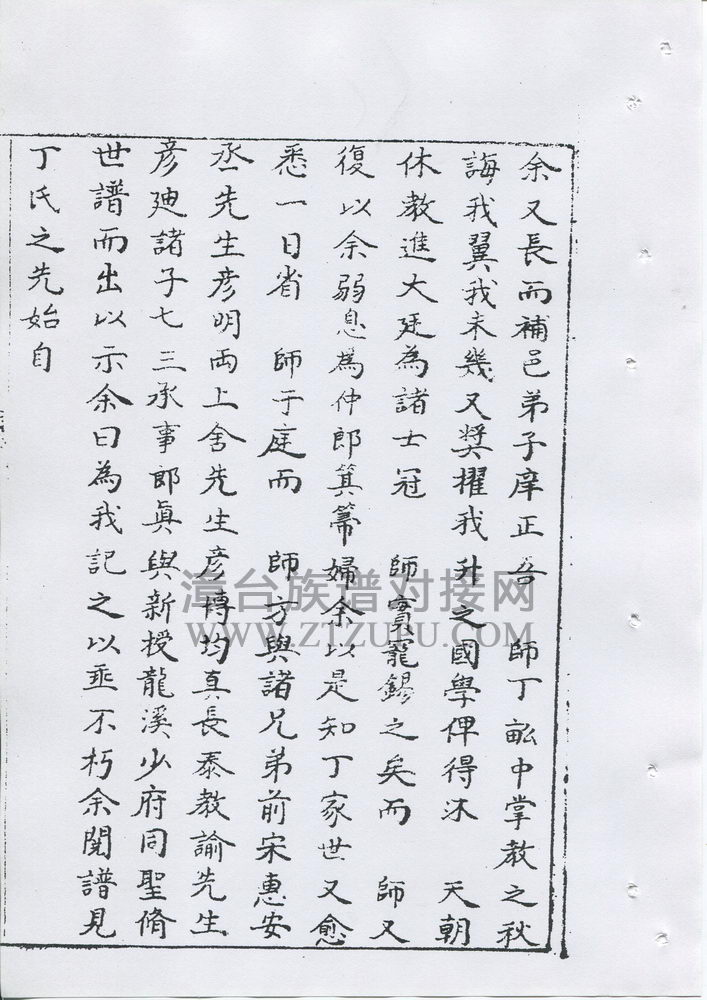 余又長而補邑弟子庠正吾 師丁畝中掌教之秋
誨我翼我未幾又奨擢我升之國學俾得沐 天朝
休教進大廷為諸士冠 師實寵錫之矣而 師又
復以余弱息為仲郎箕箒婦余以是知丁家世又愈
悉一日省 師于庭而 師方與諸兄弟前宋惠安
丞先生彦明両上舍先生彦博均真長泰教諭先生
彦廸諸子七三承事郎眞與新授龍溪少府同聖脩
世譜而出以示余曰為我記之以垂不朽余閲譜見
丁氏之先始自
漳台族谱对接网
WWW.ZTZUPU.COM